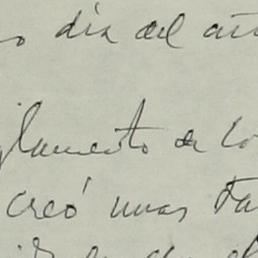 o día del añ
glamento de lo
creó unas Ta